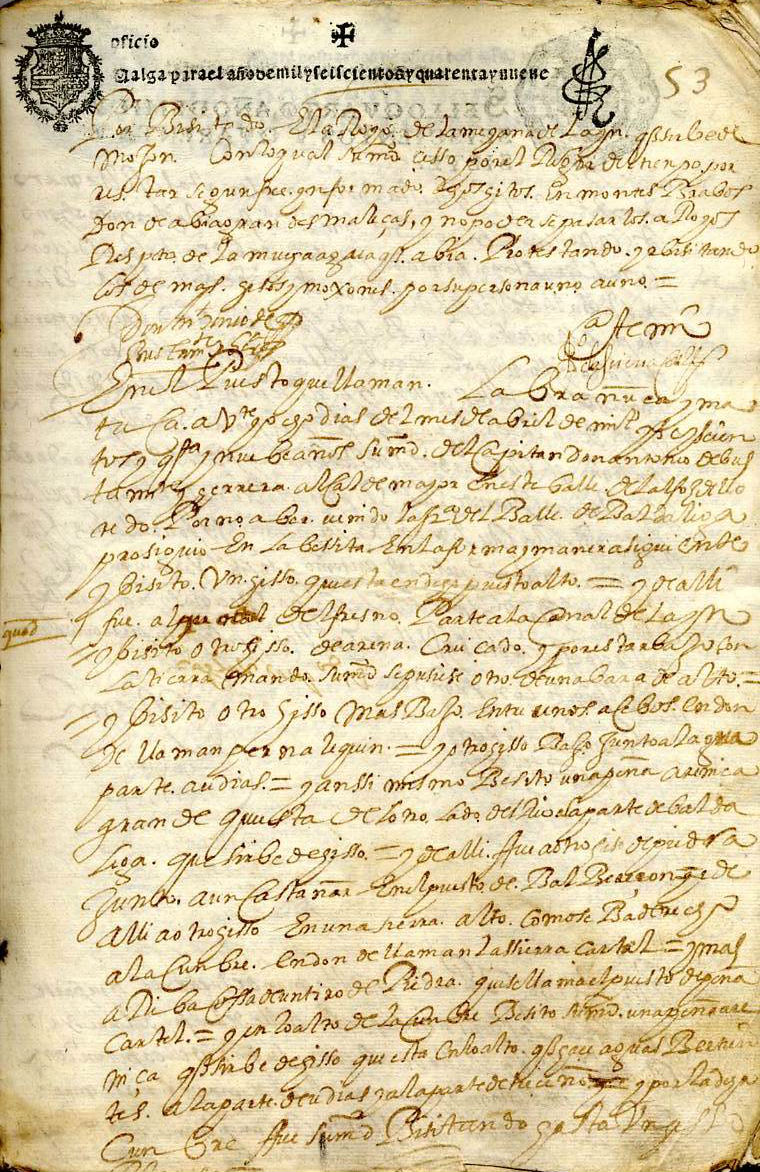 oficio
Valga para el año de mil y seiscientos y quarenta y nueve
53
Por Bisitado. El aRoyo de la megana de Lagn. q sirbe de
Mojon. Con lo qual sumd çesso por el Rigor de tiempo por
estar segun fue ynformado. Los gitos. En montes Brabos
Don de abia gran des maleças, y no poder se pasar los. aRoyos
Respto. de La mucha agua q. abia. Protestando. y bisitando
los de mas. gitos y moxones. por su persona uno a uno =
Don Antonio de
Bustamte
Ante mi
En el Puesto que llaman. La Braña nueva y ma
ta Ca. a Vte y ocho dias del mes de abril de mil y seiscien
tos y qta y nuebe años sumd. del Capitan don antonio de bus
tamte y herrera. alcalde mayor en este balle. del alfoz dello
redo. Por no aber. uenido la del Balle. de Baldaliga
prosiguio En La besita En la forma y manera siguiente
y bisito. Un gisso. questa en dicho puesto alto. = y de alli
fue. al del fresno. Parte a la Canal de Lagn
quad
= y bisito otro gisso. de arena. Cruçado. y por estar baxo con
La tierra mando. sumd se pusiese otro de una bara de alto. =
= y bisito otro gisso mas Baxo. Entre unos. açebos. En don
de llaman pernalequin. = y otro gisso Baxo Junto a la
parte. a udias. = y anssi mismo Besito una peña arenica
gran de questa de lo no. lado del Rio a la parte de balda
liga. que sirbe de gisso. = y de alli. fue a otro giso de piedra
Junto. a un Castañar En el puesto de. Bal Berron y de
alli a otro gisso En una sierra. alto. como se Ba derecho
a la Cunbre. En don de llaman la ssierra cartel = y mas
aRiba Cossa de un tiro de Piedra. que se llama el puesto de peña
Cartel. = y en lo alto de la Cunbre Besito sumd. una peña are
niça q sirbe de gisso que esta en lo alto. q haçe aguas Bertien
tes. a la parte. de udias y a la parte de y por la dha
Cun bre fue sumd Bisitando hasta Un gisso